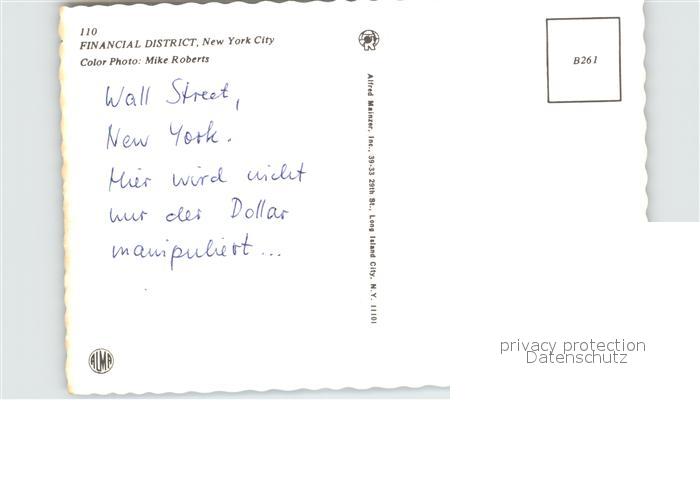 110
FINANCIAL DISTRICT, New York City
Color Photo: Mike Roberts
Wall Street,
New York.
Hier wird nicht
nur der Dollar
manipuliert...
ALMA
Alfred Mainzer, Inc., 39-33 29th St., Long Island City, N.Y. 11101
B261
privacy protection
Datenschutz